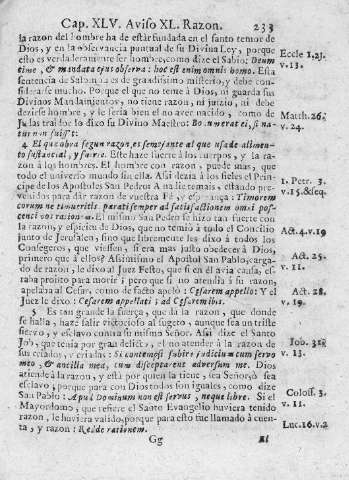 Cap. XLV. Aviso XL. Razon. 233
la razon del hombre ha de estàr fundada en el santo temor de
Dios, y en la observancia puntual de su Divina Ley, porque
esto es verdaderamente ser hombre, como dize el Sabio: Deum
time, & mandata ejus observa: hoc est enim omnis homo. Esta
sentencia de Salomòn es de grandissimo mysterio, y debe con-
siderarse mucho. Porque el que no teme à Dios, ni guarda sus
Divinos Mandamientos, no tiene razon, ni juizio, ni debe
dezirse hombre, y le seria bien el no aver nacido, como de
Judas traidor lo dixo su Divino Maestro: Bonum erat ei, si na-
tus non fuisset:
4 El que obra segun razon es semejante al que usa de alimen-
to substancial, y suave. Este haze fuerte à los cuerpos, y la ra-
zon à los hombres. El hombre con razon, puede mas, que
todo el universo mundo sin ella. Assi dezia à los fieles el Prin-
cipe de los Apostoles San Pedro: A nadie temais, estando pre-
venidos para dàr razon de vuestra Fè, y esperança: Timorem
eorum ne timueritis. Parati semper ad satisfactionem omni pos-
centi vos rationem. El mismo San Pedro se hizo tan fuerte con
la razon, y espiritu de Dios, que no temiò à todo el Concilio
junto de Jerusalen, sino que libremente les dixo à todos los
Consegeros, que viessen, si era mas justo obedecer à Dios,
primero que à ellos? Assimismo el Apostol San Pablo, carga-
do de razon, le dixo al Juez Festo, que si en èl avia causa, es-
taba prompto para morir; pero que si no atendia à su razon,
apelaba al Cesar, como de facto apelò: Cesarem appello: Y el
Juez le dixo: Cesarem appellasti; ad Cesarem ibis.
5 Es tan grande la fuerça, que dà la razon, que donde
se halla, hazer salir victorioso al sugeto, aunque sea un triste
siervo, y esclavo contra su mismo Señor. Assi dize el Santo
Job, que tenia por gran delicto, el no atender à la razon de
sus criados, y criadas: Si contempsi subire judicium cum servo
meo, & ancilla mea, cum disceptarent adversum me. Dios
atiende à la razon, y està por quien la tiene, sea Señor, ò sea
esclavo; porque para con Dios todos son iguales, como dize
San Pablo: Apud Dominum non est servus, neque liber. Si el
Mayordomo, que refiere el Santo Evangelio huviera tenido
razon, le huviera valido; porque para esto fue llamado à cuen-
ta, y razon: Redde rationem.
Gg El
Eccle 12.
v.13.
Matth.26.
v. 24.
1. Petr. 3.
v.15.&seq.
Act.4.v.19
Act. 25.
v. 11.
Act. 28.
v. 19.
Job. 31.
v. 13.
Coloss. 3.
v. 11.
Luc.16.v.2